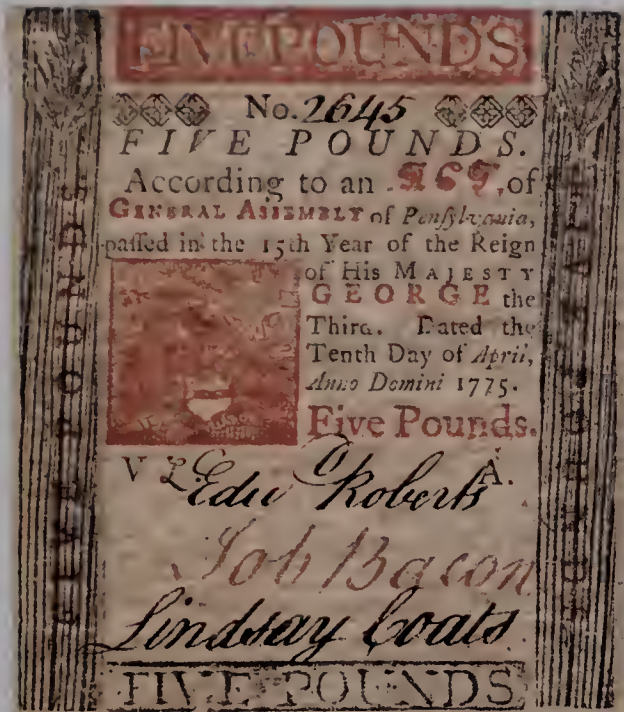 FIVE POUNDS
No. 2645
FIVE POUNDS.
According to an ACT, of
GENERAL ASSEMBLY of Penſylvania,
paſſed in the 15th Year of the Reign
of His MAJESTY
GEORGE the
Third. Dated the
Tenth Day of April,
Anno Domini 1775.
Five Pounds.
V L. A.
Edw Roberts
Job Bacon
Lindsay Coats
FIVE POUNDS
FIVE POUNDS